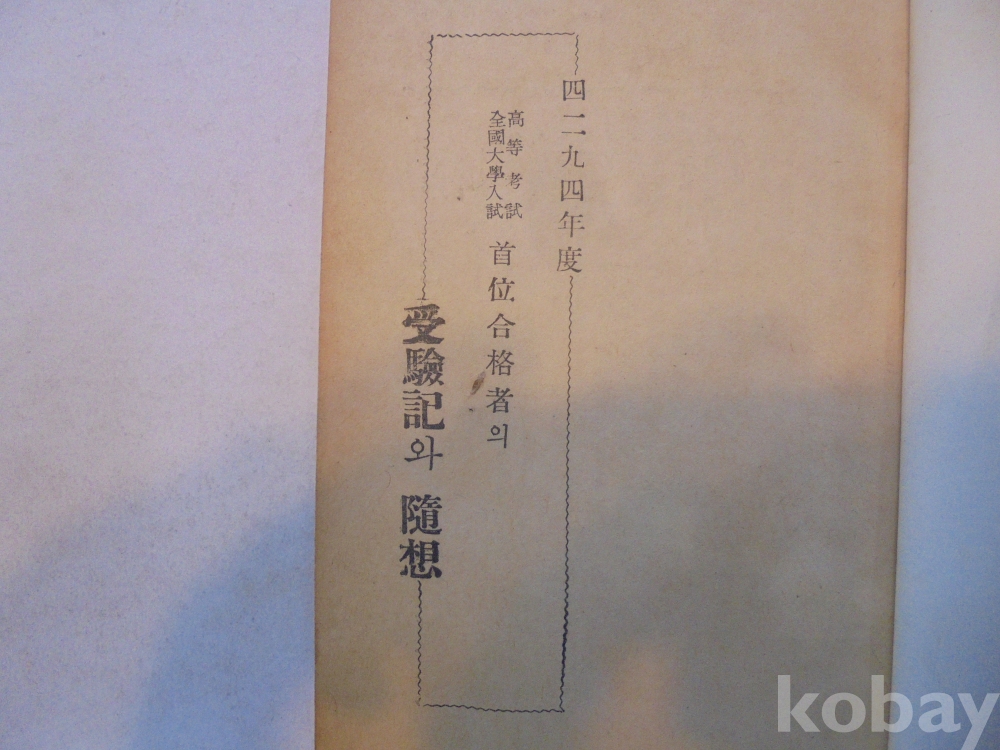 四二九四年度
高等考試
全國大學入試
首位合格者의
受驗記와 隨想
kobay